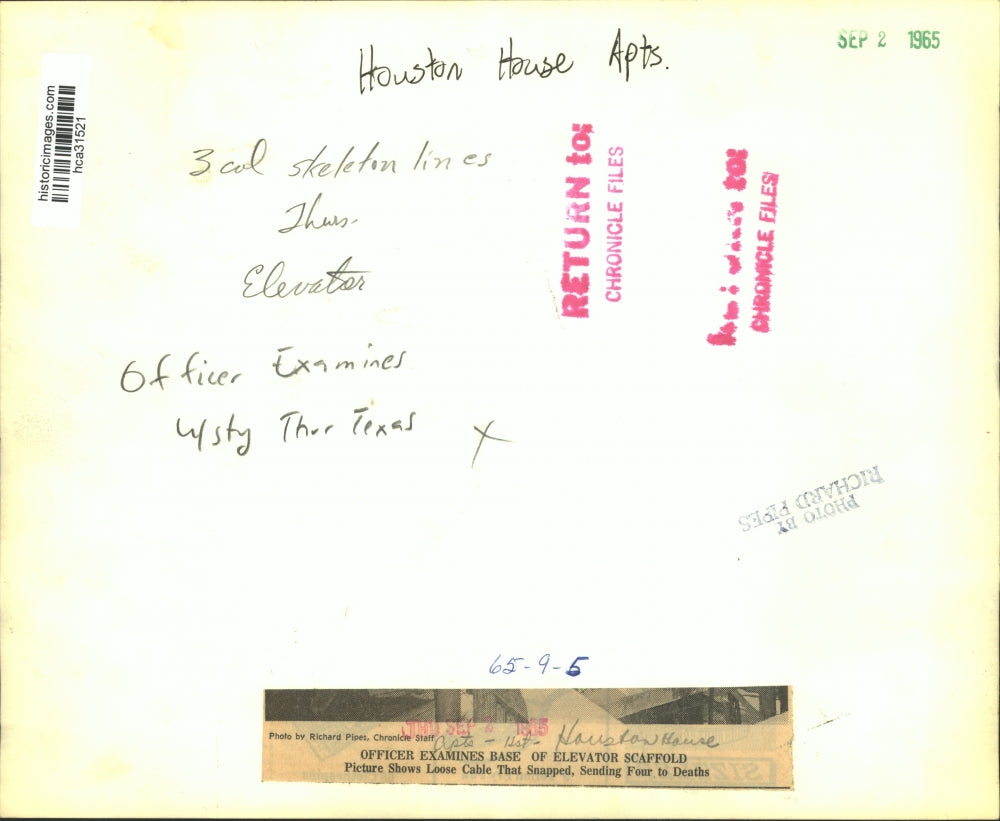 Houston House Apts.
SEP 2 1965
historicimages.com
hca31521
3 col skeleton lines
Thurs.
Elevator
RETURN to:
CHRONICLE FILES
to:
CHRONICLE FILES
Officer Examines
w/sty Thur Texas X
PHOTO BY
RICHARD PIPES
65-9-5
SEP 2 1965
Photo by Richard Pipes, Chronicle Staff
Apts - Hst - Houston House
OFFICER EXAMINES BASE OF ELEVATOR SCAFFOLD
Picture Shows Loose Cable That Snapped, Sending Four to Deaths